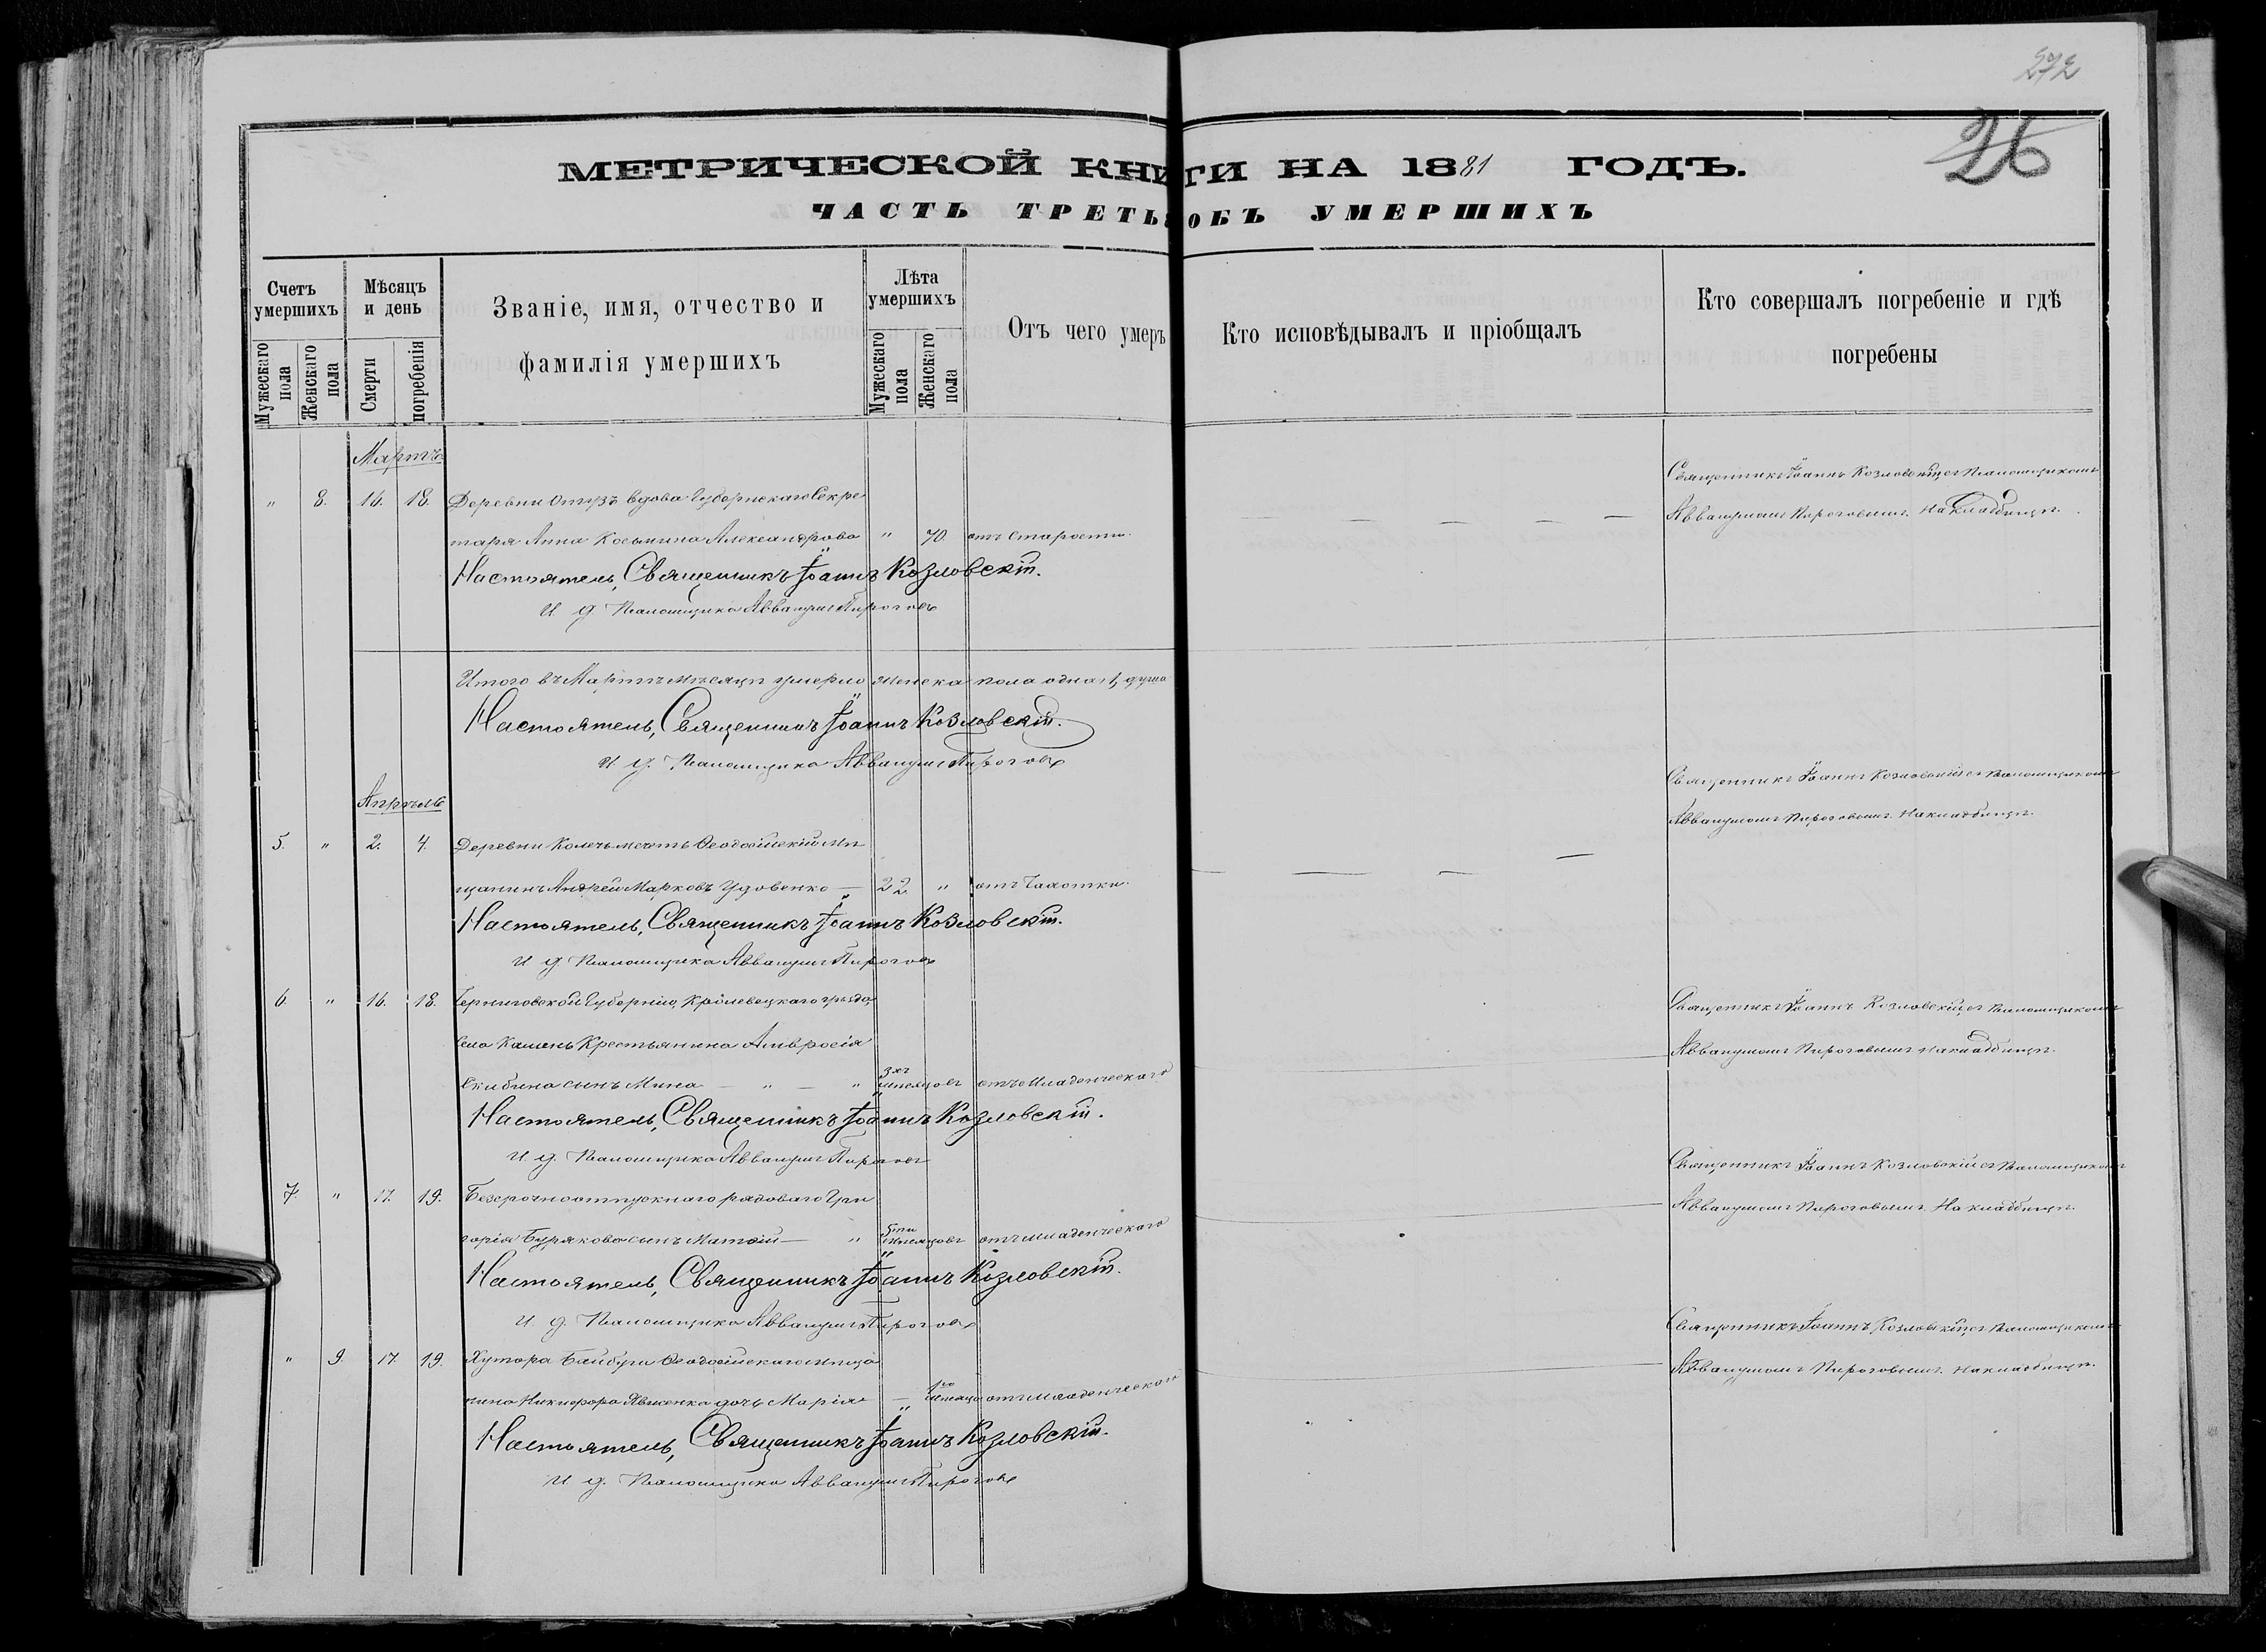 272
26
МЕТРИЧЕСКОЙ КНИГИ НА 1881 ГОДЪ.
ЧАСТЬ ТРЕТЬЯ ОБЪ УМЕРШИХЪ
Счетъ умершихъ
Мужескаго пола
Женскаго пола
Мѣсяцъ и день
Смерти
погребенія
Званіе, имя, отчество и
фамилія умершихъ
Лѣта умершихъ
Мужескаго пола
Женскаго пола
Отъ чего умеръ
Кто исповѣдывалъ и пріобщалъ
Кто совершалъ погребеніе и гдѣ
погребены
Мартъ
Священникъ Іоаннъ Козловскій съ Псаломщикомъ
" 8. 16. 18. Деревни Отузъ вдова Губернскаго Секре
Аввакумомъ Пироговымъ. На кладбищѣ.
таря Анна Косьмина Александрова " 70. отъ старости.
Настоятель, Священникъ Іоаннъ Козловскій.
И д Псаломщика Аввакумъ Пироговъ
Итого въ Мартѣ мѣсяцѣ умерло женска пола одна, 1, душа
Настоятель, Священникъ Іоаннъ Козловскій.
И д. Псаломщика Аввакумъ Пироговъ
Апрѣль
Священникъ Іоаннъ Козловскій съ Псаломщикомъ
Аввакумомъ Пироговымъ. На кладбищѣ.
5. " 2. 4. Деревни Колечьмечеть Ѳеодосійскій мѣ
щанинъ Андрей Марковъ Удовенко — 22. " отъ Чахотки.
Настоятель, Священникъ Іоаннъ Козловскій.
И д Псаломщика Аввакумъ Пироговъ
6. " 16. 18. Черниговской Губерніи, Кролевецкаго уѣзда,
Священникъ Іоаннъ Козловскій съ Псаломщикомъ
села Камень Крестьянина Амвросія
Аввакумомъ Пироговымъ на кладбищѣ.
сынъ Мина — " — " 3хъ мѣсяцовъ отъ младенческаго
Настоятель, Священникъ Іоаннъ Козловскій.
И д. Псаломщика Аввакумъ Пироговъ
Священникъ Іоаннъ Козловскій съ Псаломщикомъ
7. " 17. 19. Безсрочноотпускнаго рядоваго Гри
Аввакумомъ Пироговымъ. На кладбищѣ.
горія Бурякова сынъ Матѳій — " 5ти мѣсяцовъ отъ младенческаго
Настоятель, Священникъ Іоаннъ Козловскій.
И. д. Псаломщика Аввакумъ Пироговъ
Священникъ Іоаннъ Козловскій съ Псаломщикомъ
" 9. 17. 19. Хутора Байбуга Ѳеодосійскаго мѣща
Аввакумомъ Пироговымъ. На кладбищѣ.
нина Никифора дочь Марія — 1го мѣсяца отъ младенческаго
Настоятель, Священникъ Іоаннъ Козловскій.
И д. Псаломщика Аввакумъ Пироговъ